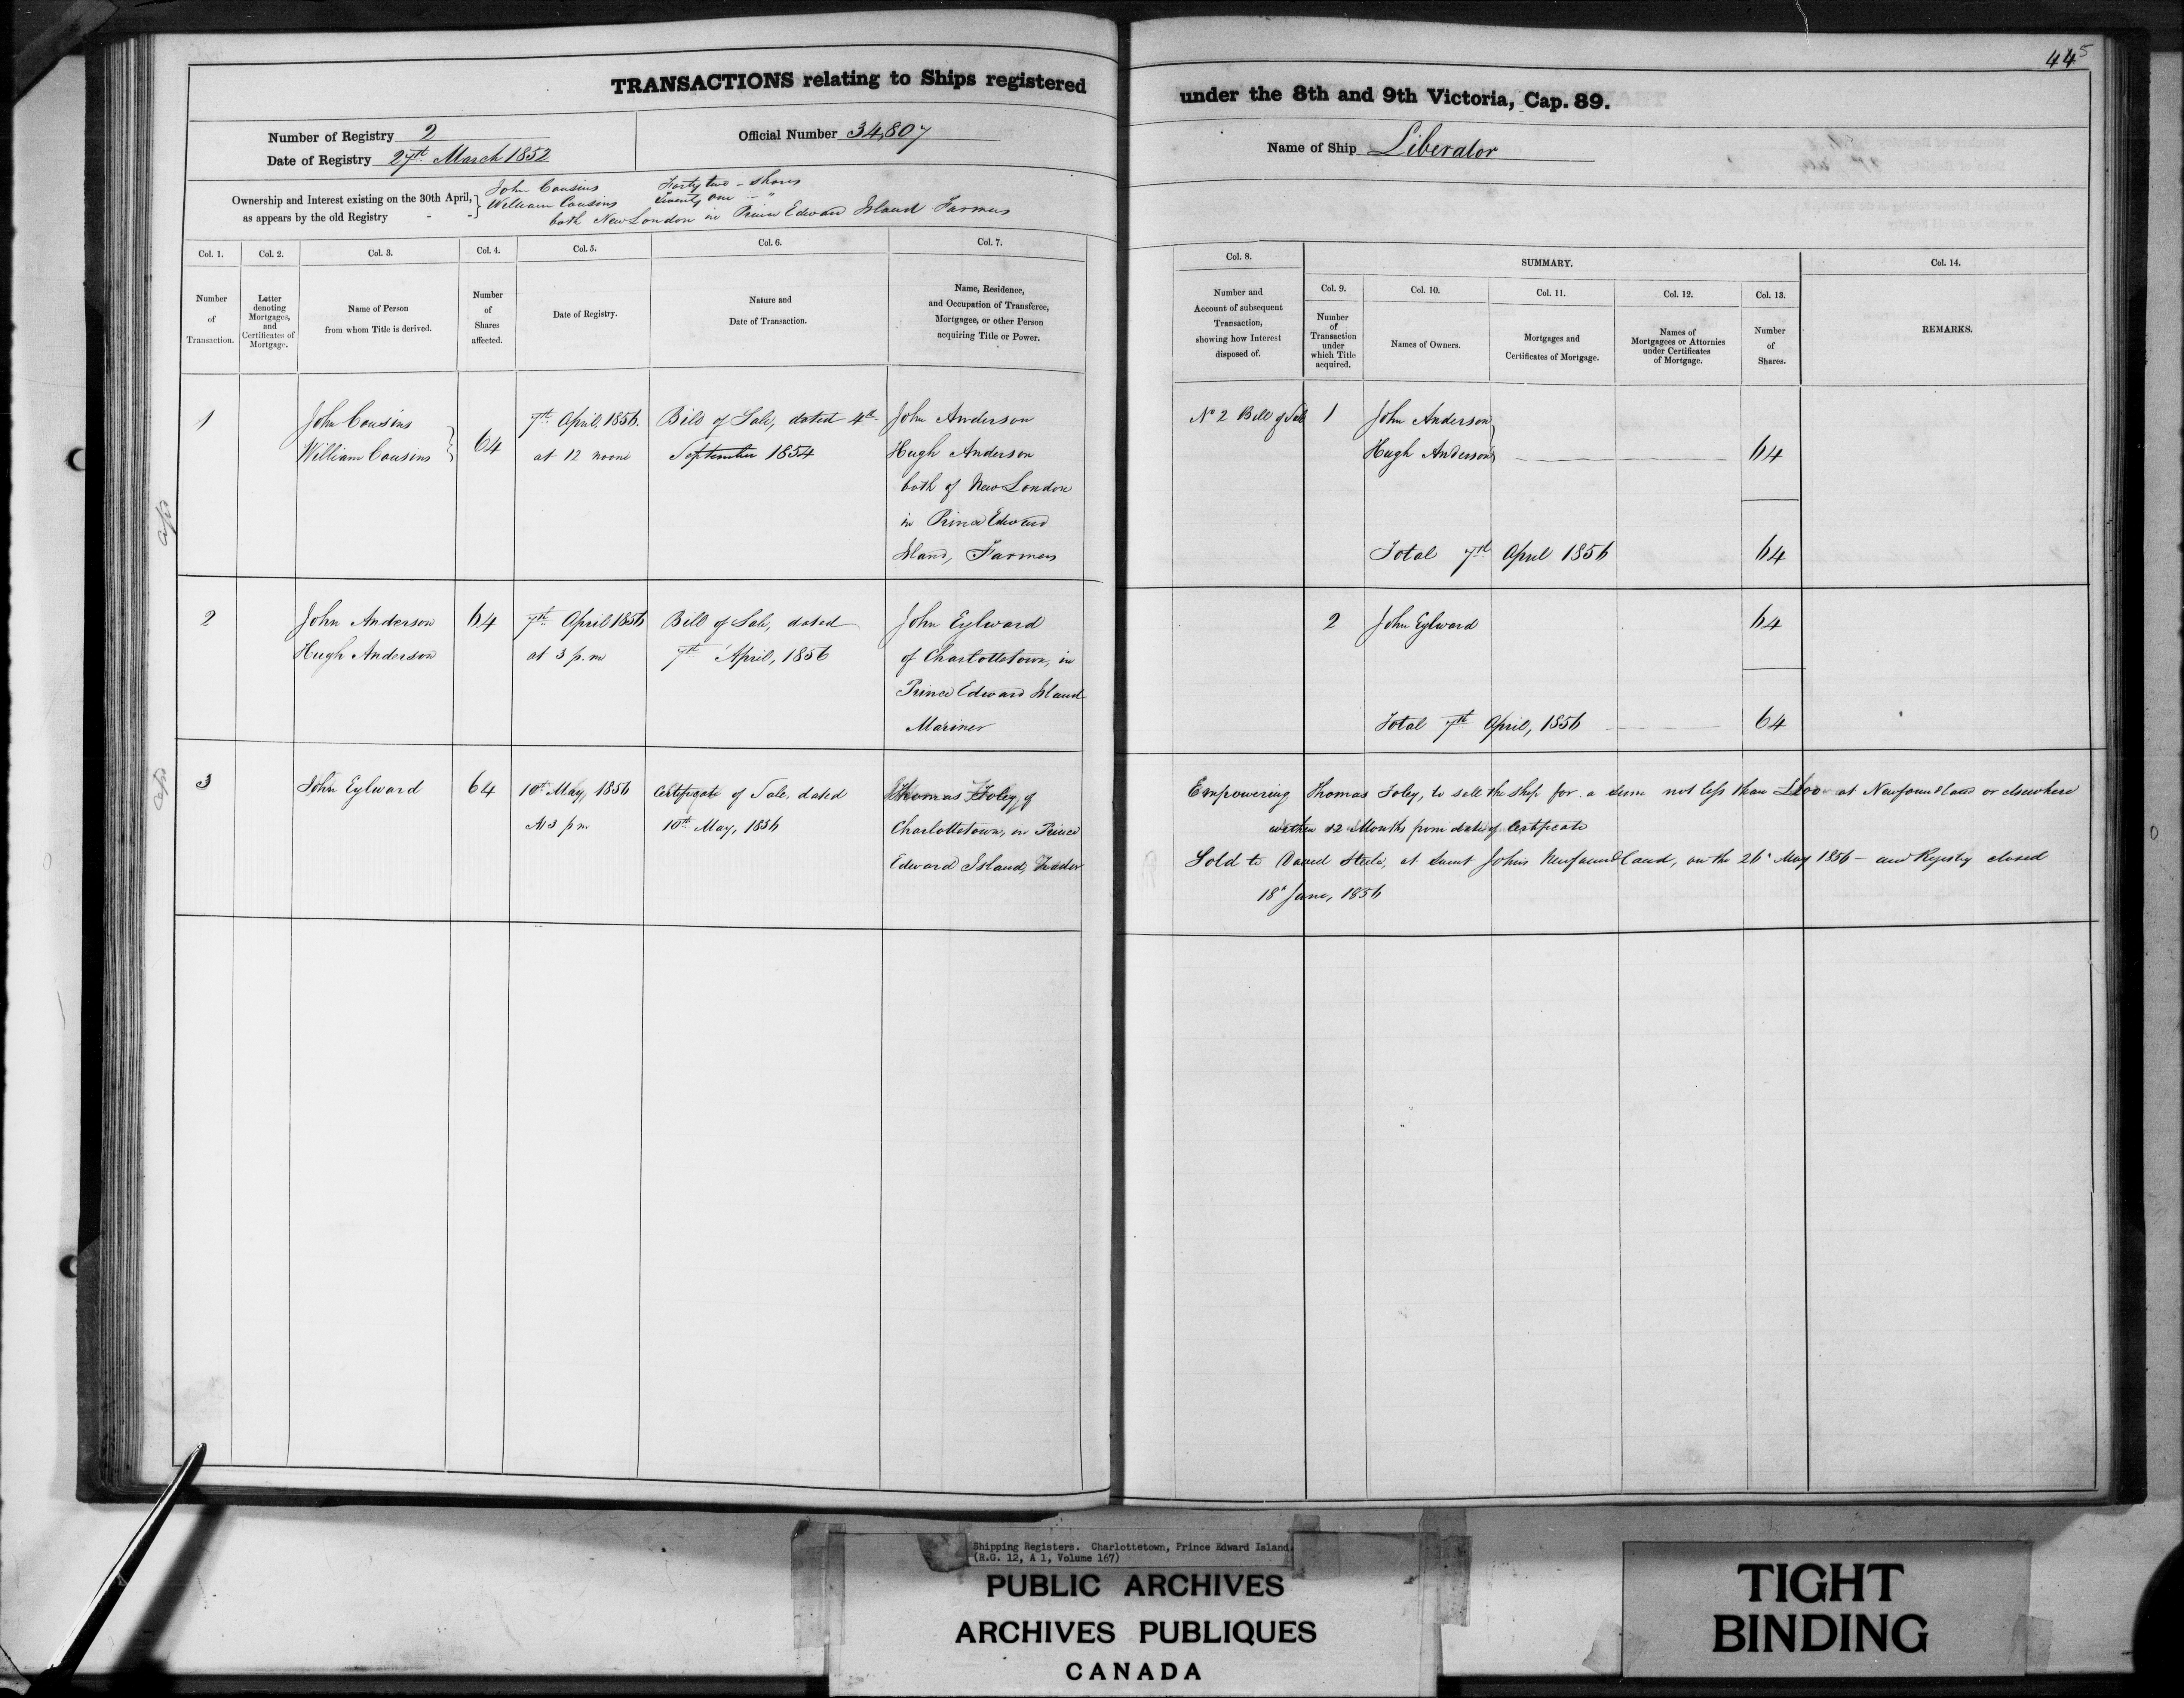 445
TRANSACTIONS relating to Ships registered
under the 8th and 9th Victoria, Cap. 89.
Number of Registry 2
Date of Registry 27th March 1852
Official Number 34,807
Name of Ship Liberator
Ownership and Interest existing on the 30th April,
as appears by the old Registry - -
John Cousins Forty two - shares
William Cousins Twenty one - "
both New London in Prince Edward Island Farmers
Col. 1.
Number
of
Transaction.
Col. 2.
Letter
denoting
Mortgages,
and
Certificates of
Mortgage.
Col. 3.
Name of Person
from whom Title is derived.
Col. 4.
Number
of
Shares
affected.
Col. 5.
Date of Registry.
Col. 6.
Nature and
Date of Transaction.
Col. 7.
Name, Residence,
and Occupation of Transferee,
Mortgagee, or other Person
acquiring Title or Power.
Col. 8.
Number and
Account of subsequent
Transaction,
showing how Interest
disposed of.
SUMMARY.
Col. 9.
Number
of
Transaction
under
which Title
acquired.
Col. 10.
Names of Owners.
Col. 11.
Mortgages and
Certificates of Mortgage.
Col. 12.
Names of
Mortgagees or Attornies
under Certificates
of Mortgage.
Col. 13.
Number
of
Shares.
Col. 14.
REMARKS.
1
John Cousins
William Cousins
64
7th April, 1856.
at 12 noon
Bill of Sale, dated 4th
September 1854
John Anderson
Hugh Anderson
both of New London
in Prince Edward
Island, Farmers
No 2 Bill of Sale
1
John Anderson
Hugh Anderson
64
Total 7th April 1856
64
2
John Anderson
Hugh Anderson
64
7th April 1856
at 3 p.m
Bill of Sale, dated
7th April, 1856
John Eylward
of Charlottetown, in
Prince Edward Island
Mariner
2
John Eylward
64
Total 7th April, 1856
64
3
John Eylward
64
10th May, 1856
At 3 p m
Certificate of Sale, dated
10th May, 1856
Thomas Foley, of
Charlottetown, in Prince
Edward Island, Trader
Empowering Thomas Foley, to sell the Ship for a sum not less than at Newfoundland or elsewhere
within 12 Months from date of Certificate
Sold to David Steele, at Saint Johns Newfoundland, on the 26th May 1856 - and Registry closed
18th June, 1856
Shipping Registers. Charlottetown, Prince Edward Island.
(R.G. 12, A 1, Volume 167)
PUBLIC ARCHIVES
ARCHIVES PUBLIQUES
CANADA
TIGHT
BINDING